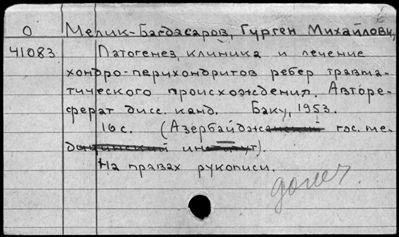 О Мелик-Багдасаров, Гурген Михайлович,
41083 Патогенез, клиника и лечение
хондро-перихондритов ребер травма-
тического происхождения. Авторе-
ферат дисс. канд. Баку, 1953.
16 с. (Азербайджанский гос. ме-
дицинский институт).
На правах рукописи.